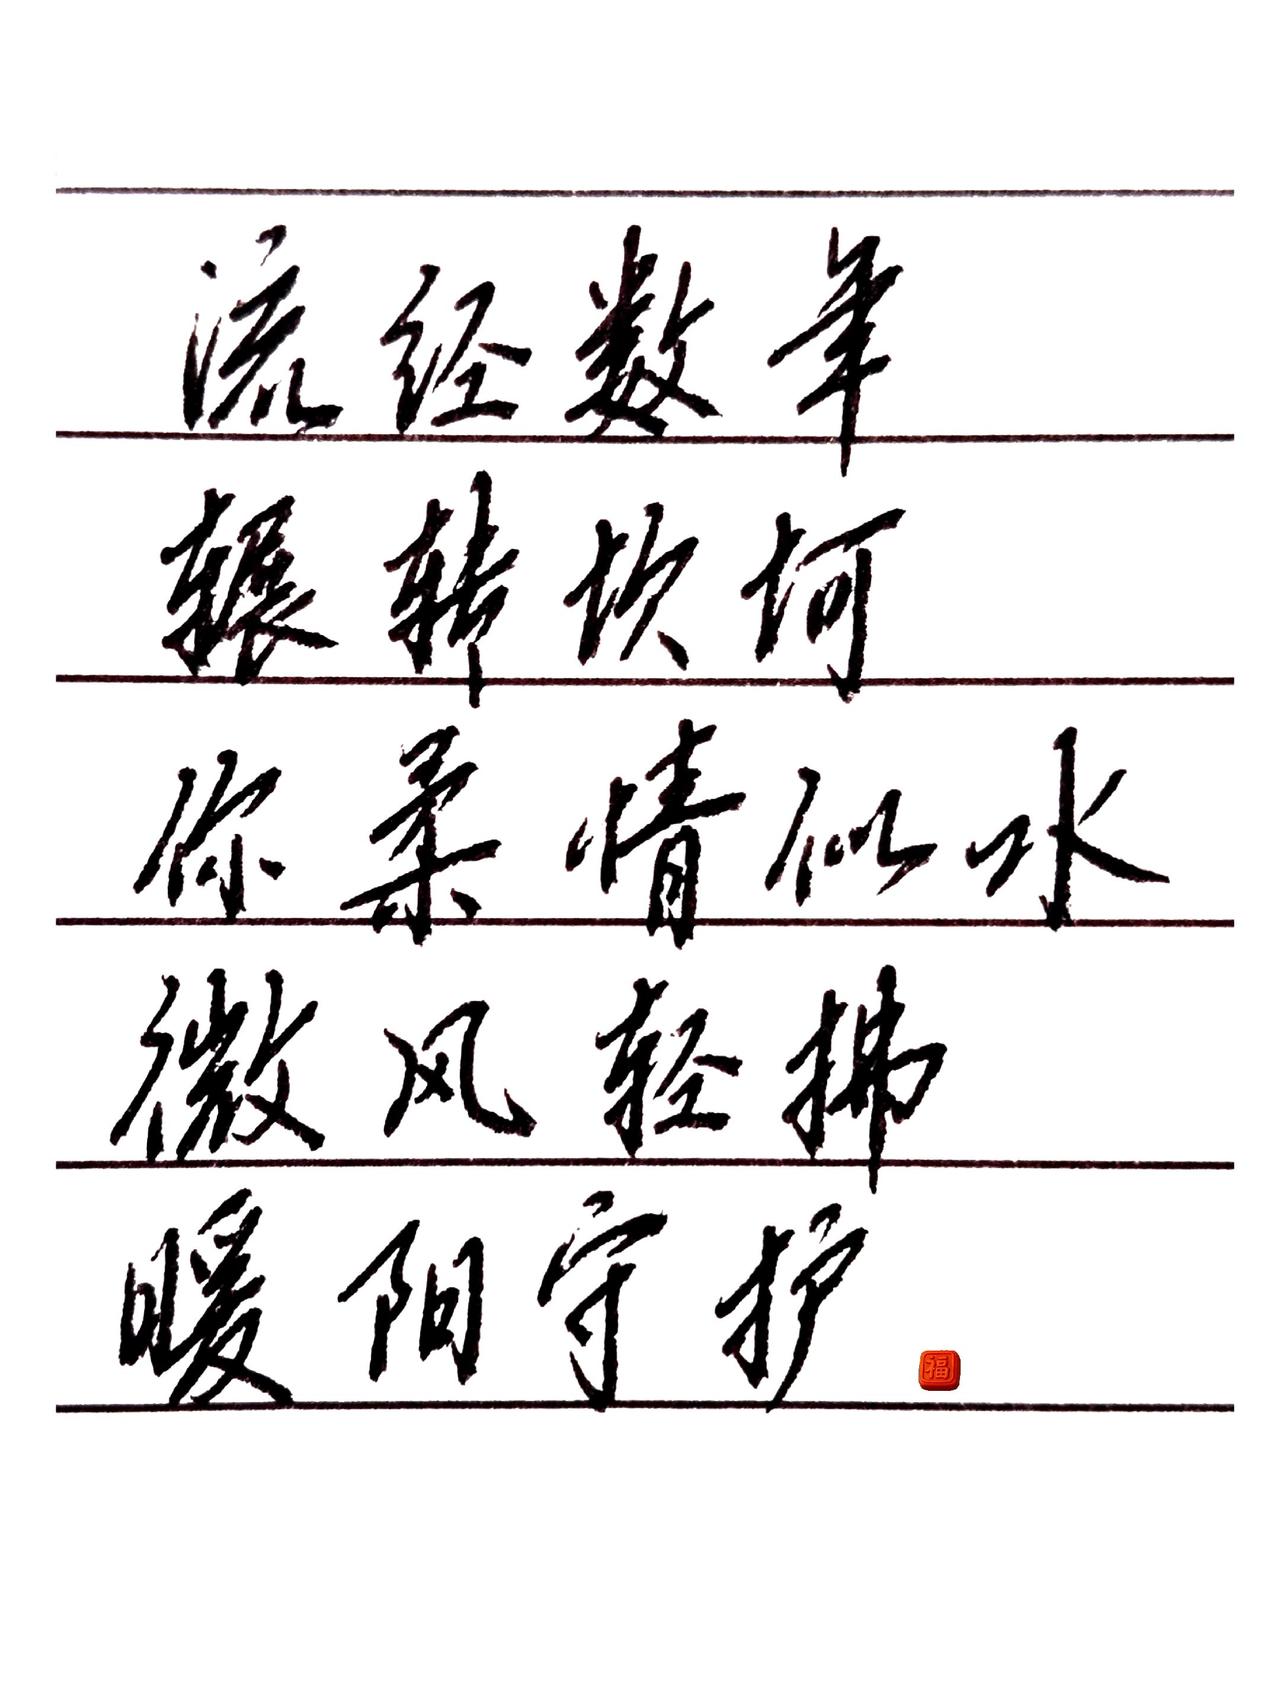 流经数年
辗转坎坷
你柔情似水
微风轻拂
暖阳守护
福